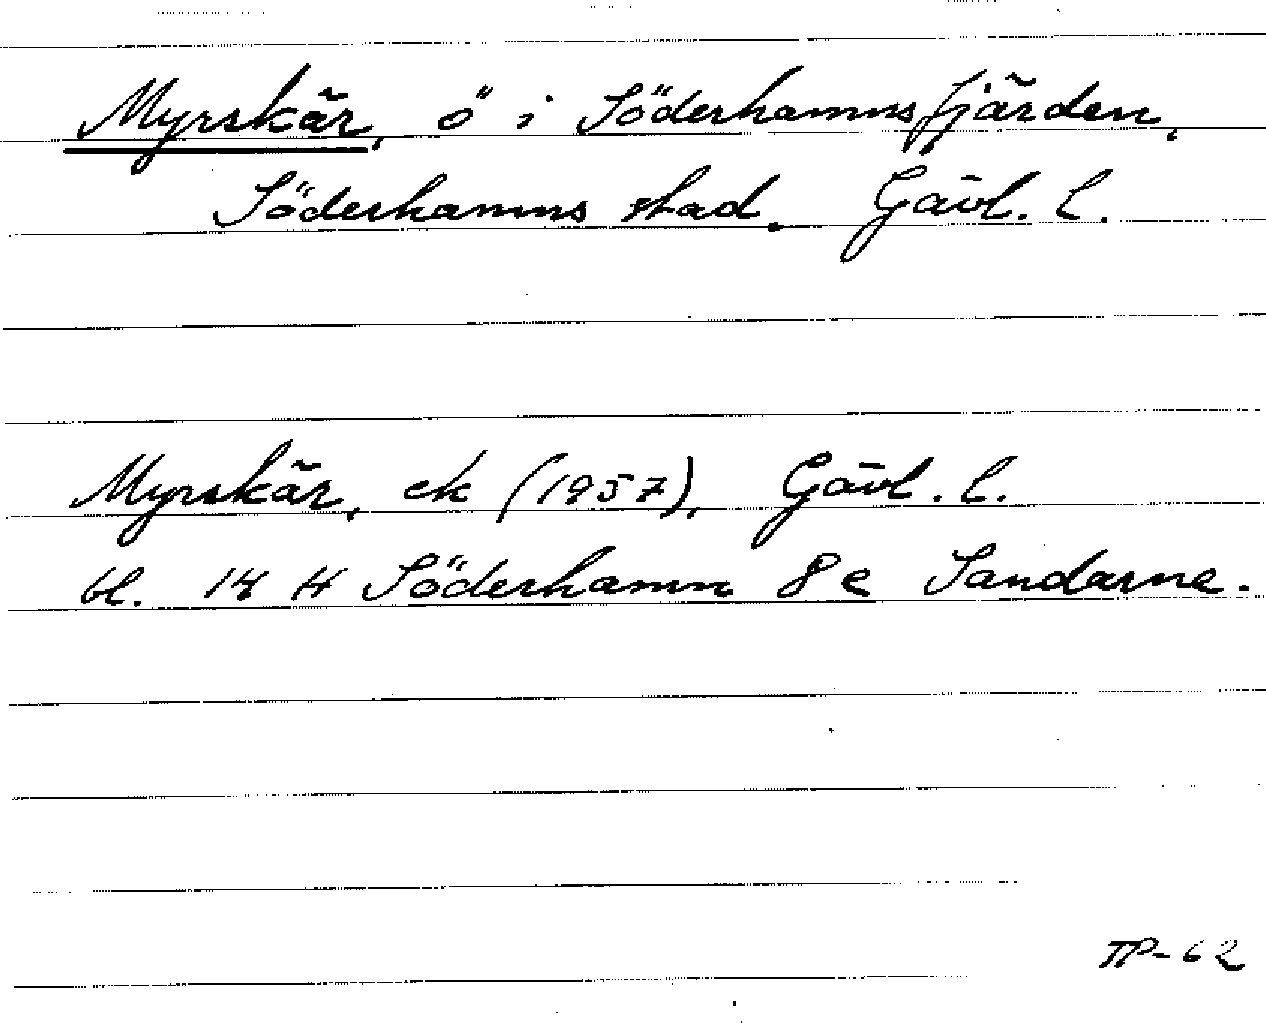 Myrskär, ö i Söderhamnsfjärden,
Söderhamns stad. Gävl. l.
Myrskär, ek (1957), Gävl. l.
bl. 14 H Söderhamn 8 e Sandarne.
TP-62